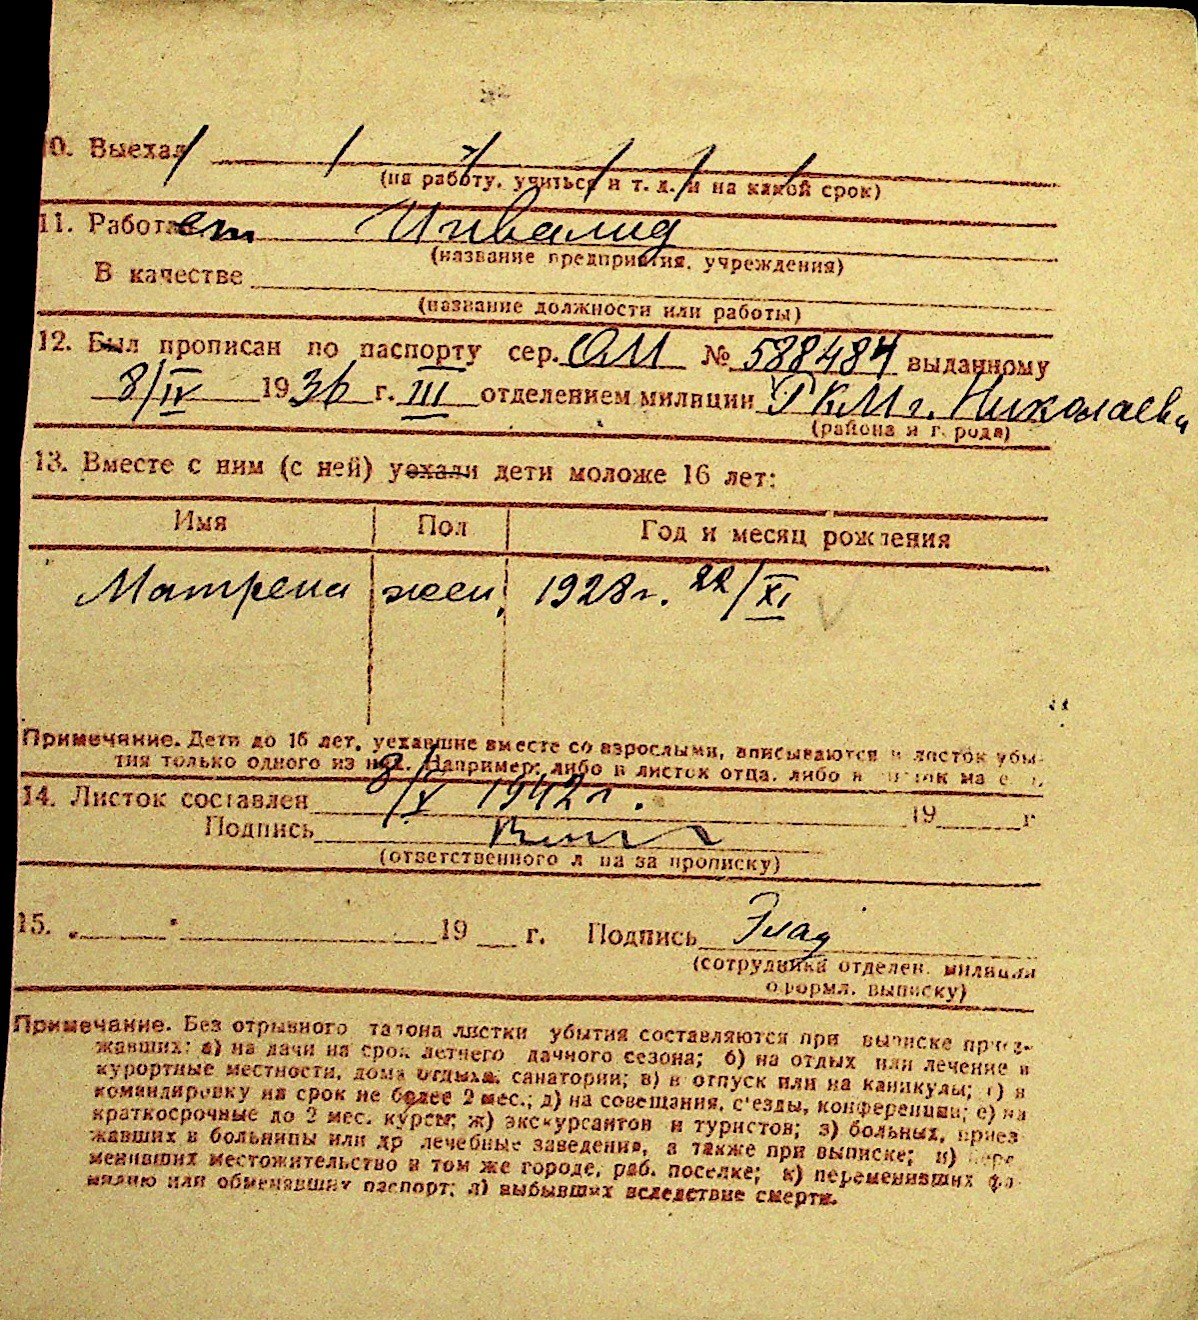 10. Выехал
(на работу, учиться и т. д. и на какой срок)
11. Работает Инвалид
(название предприятия, учреждения)
В качестве
(название должности или работы)
12. Был прописан по паспорту сер. ОМ № 588484 выданному
8/IV 1936 г. III отделением милиции РКМ г. Николаева
(района и города)
13. Вместе с ним (с ней) уехали дети моложе 16 лет:
Имя Пол Год и месяц рождения
Матрена жен. 1928 г. 22/XI
Примечание. Дети до 16 лет, уехавшие вместе со взрослыми, вписываются в листок убы-
тия только одного из них. Например: либо в листок отца, либо в листок матери.
14. Листок составлен 8/X 1942 г. 19 г
Подпись
(ответственного лица за прописку)
15. „ " 19 г. Подпись
(сотрудника отделен. милиции
оформл. выписку)
Примечание. Без отрывного талона листки убытия составляются при выписке приез-
жавших: а) на дачи на срок летнего дачного сезона; б) на отдых или лечение в
курортные местности, дома отдыха, санатории; в) в отпуск или на каникулы; г) в
командировку на срок не более 2 мес.; д) на совещания, с'езды, конференции; е) на
краткосрочные до 2 мес. курсы; ж) экскурсантов и туристов; з) больных, приез-
жавших в больницы или др лечебные заведения, а также при выписке; и) пере-
менивших местожительство в том же городе, раб. поселке; к) переменивших фа-
милию или обменявших паспорт; л) выбывших вследствие смерти.